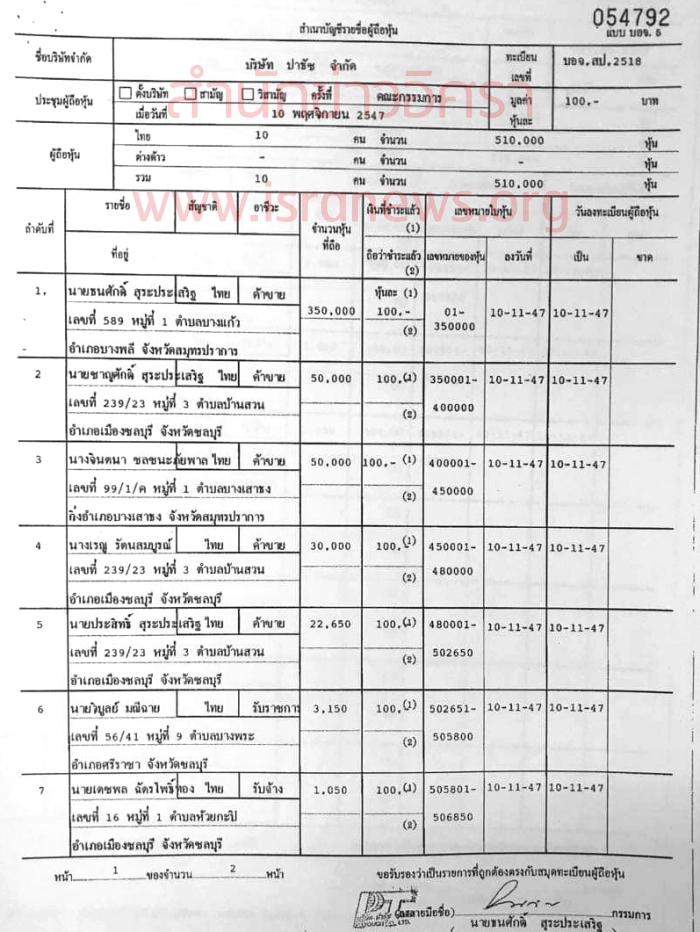 054792
แบบ บอจ. 5
สำเนาบัญชีรายชื่อผู้ถือหุ้น
ชื่อบริษัทจำกัด บริษัท ปาธัช จำกัด ทะเบียนเลขที่ บอจ.สป.2518
สำนักข่าวอิศรา
ประชุมผู้ถือหุ้น ตั้งบริษัท สามัญ วิสามัญ ครั้งที่ คณะกรรมการ มูลค่าหุ้นละ 100.- บาท
เมื่อวันที่ 10 พฤศจิกายน 2547
ผู้ถือหุ้น ไทย 10 คน จำนวน 510,000 หุ้น
ต่างด้าว - คน จำนวน - หุ้น
รวม 10 คน จำนวน 510,000 หุ้น
www.isranews.org
ลำดับที่ รายชื่อ สัญชาติ อาชีวะ จำนวนหุ้นที่ถือ เงินที่ชำระแล้ว (1) เลขหมายใบหุ้น วันลงทะเบียนผู้ถือหุ้น
ที่อยู่ ถือว่าชำระแล้ว (2) เลขหมายของหุ้น ลงวันที่ เป็น ขาด
1. นายธนศักดิ์ สุระประเสริฐ ไทย ค้าขาย หุ้นละ (1)
350,000 100.- 01- 10-11-47 10-11-47
เลขที่ 589 หมู่ที่ 1 ตำบลบางแก้ว (2) 350000
อำเภอบางพลี จังหวัดสมุทรปราการ
2 นายชาญศักดิ์ สุระประเสริฐ ไทย ค้าขาย 50,000 100.(1) 350001- 10-11-47 10-11-47
เลขที่ 239/23 หมู่ที่ 3 ตำบลบ้านสวน (2) 400000
อำเภอเมืองชลบุรี จังหวัดชลบุรี
3 นางจินตนา ชลชนะภัยพาล ไทย ค้าขาย 50,000 100.- (1) 400001- 10-11-47 10-11-47
เลขที่ 99/1/ค หมู่ที่ 1 ตำบลบางเสาธง (2) 450000
กิ่งอำเภอบางเสาธง จังหวัดสมุทรปราการ
4 นางเรณู รัตนสมบูรณ์ ไทย ค้าขาย 30,000 100.(1) 450001- 10-11-47 10-11-47
เลขที่ 239/23 หมู่ที่ 3 ตำบลบ้านสวน (2) 480000
อำเภอเมืองชลบุรี จังหวัดชลบุรี
5 นายประสิทธิ์ สุระประเสริฐ ไทย ค้าขาย 22,650 100.(1) 480001- 10-11-47 10-11-47
เลขที่ 239/23 หมู่ที่ 3 ตำบลบ้านสวน (2) 502650
อำเภอเมืองชลบุรี จังหวัดชลบุรี
6 นายวิบูลย์ มณีฉาย ไทย รับราชการ 3,150 100.(1) 502651- 10-11-47 10-11-47
เลขที่ 56/41 หมู่ที่ 9 ตำบลบางพระ (2) 505800
อำเภอศรีราชา จังหวัดชลบุรี
7 นายเดชพล ฉัตรโพธิ์ทอง ไทย รับจ้าง 1,050 100.(1) 505801- 10-11-47 10-11-47
เลขที่ 16 หมู่ที่ 1 ตำบลห้วยกะปิ (2) 506850
อำเภอเมืองชลบุรี จังหวัดชลบุรี
หน้า 1 ของจำนวน 2 หน้า ขอรับรองว่าเป็นรายการที่ถูกต้องตรงกับสมุดทะเบียนผู้ถือหุ้น
(ลงลายมือชื่อ) กรรมการ
( นายธนศักดิ์ สุระประเสริฐ